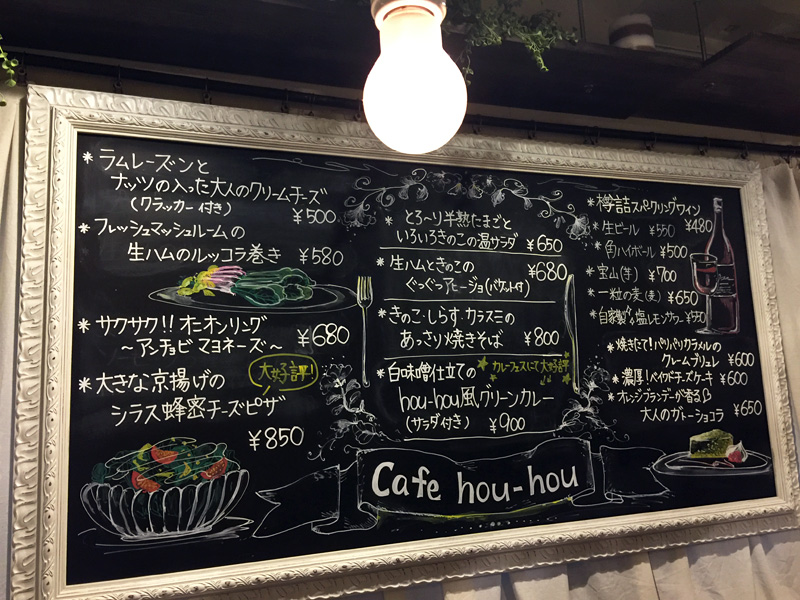 *ラムレーズンと
ナッツの入った大人のクリームチーズ
(クラッカー付き) ¥500
*フレッシュマッシュルームの
生ハムのルッコラ巻き ¥580
*サクサク!!オニオンリング
~アンチョビマヨネーズ~ ¥680
*大きな京揚げの 大好評!
シラス蜂蜜チーズピザ
¥850
*とろ~り半熟たまごと
いろいろきのこの温サラダ ¥650
*生ハムときのこの ¥680
ぐつぐつアヒージョ(バケット付)
*きのこ・しらす・カラスミの
あっさり焼きそば ¥800
*白味噌仕立ての カレーフェスにて大好評!!
hou-hou風グリーンカレー
(サラダ付き) ¥900
*樽詰スパークリングワイン
¥480
*生ビール ¥550
*角ハイボール ¥500
*宝山(芋) ¥700
*一粒の麦(麦) ¥650
*自家製塩レモンサワー ¥550
*焼きたて!パリパリカラメルの
クレームブリュレ ¥600
*濃厚!ベイクドチーズケーキ ¥600
*オレンジブランデーが香る
大人のガトーショコラ ¥650
Cafe hou-hou